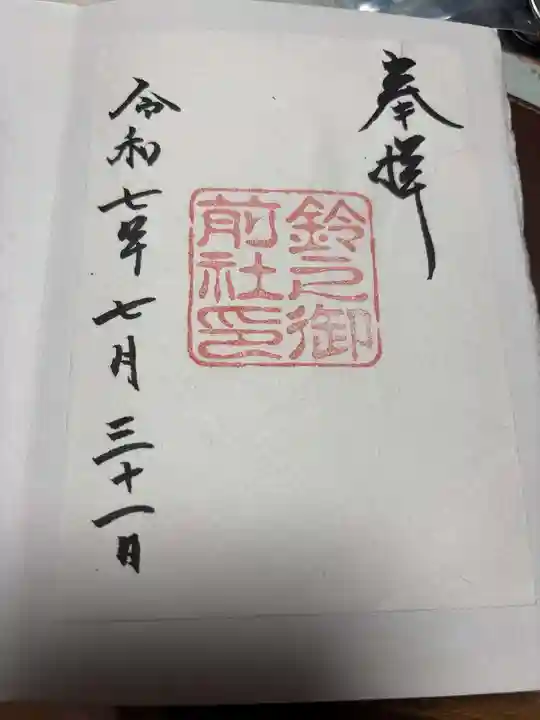 奉拝
鈴之御
前社印
令和七年七月三十一日